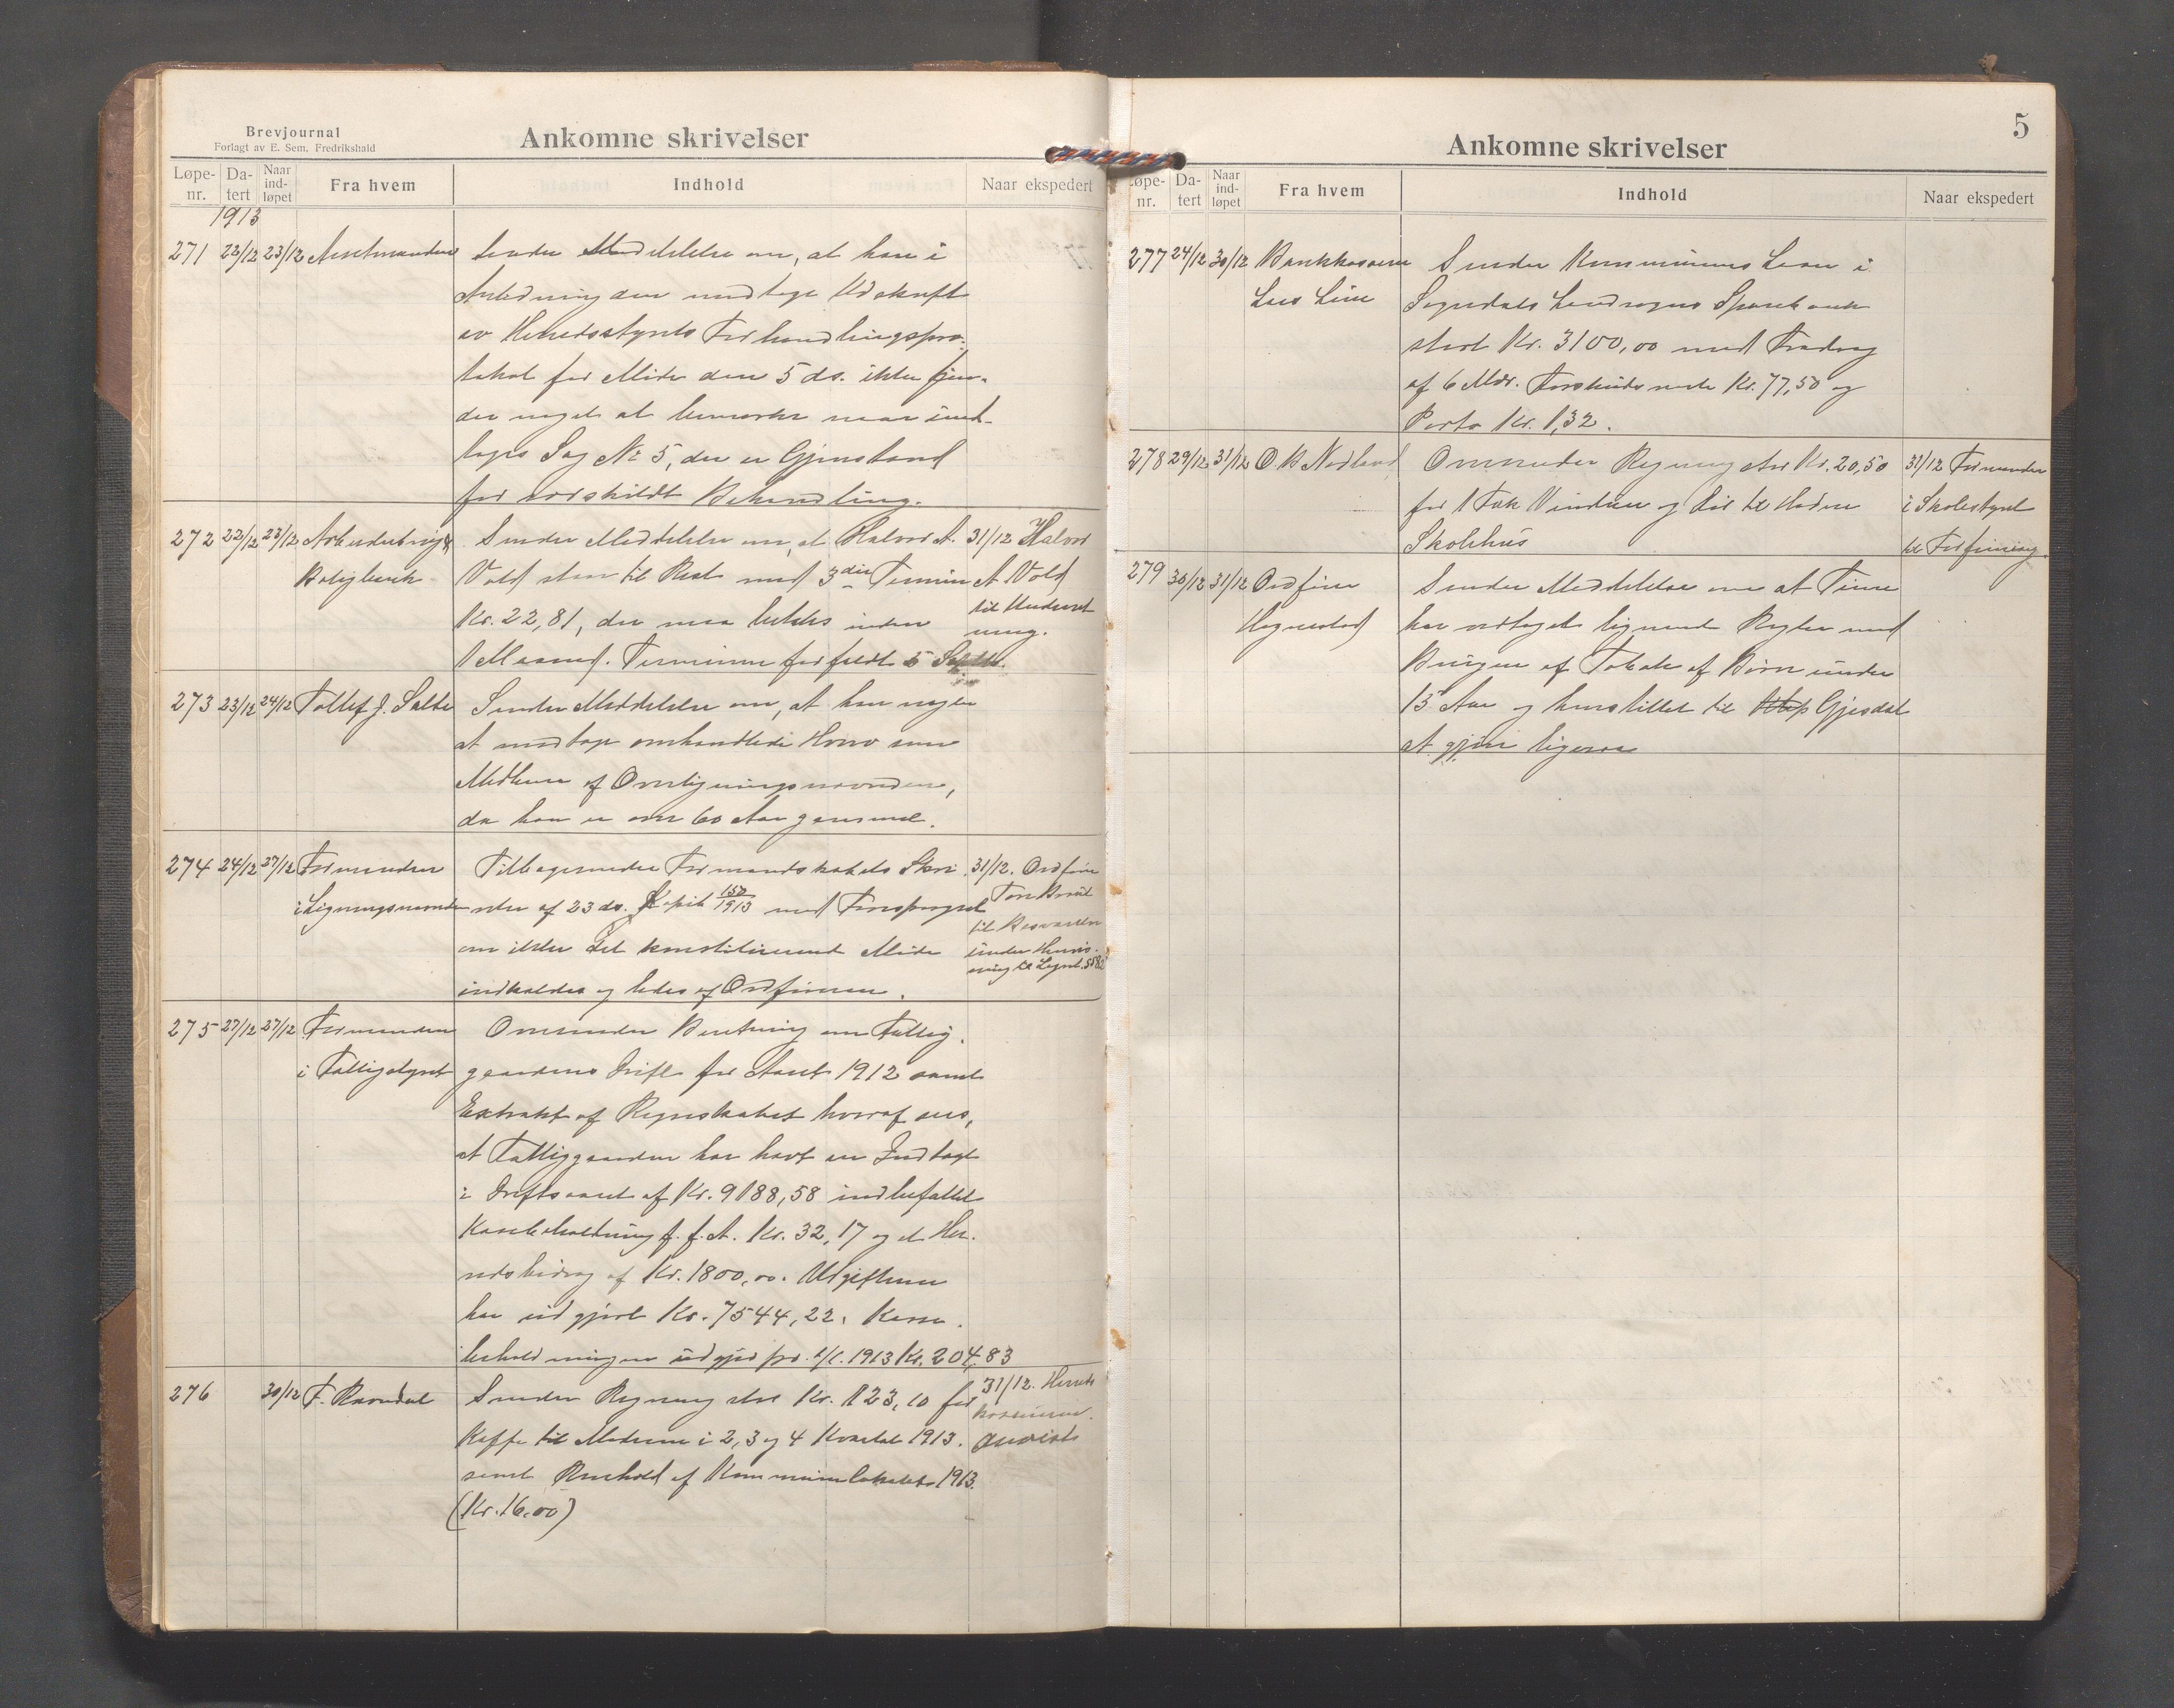 Brevjournal
Forlagt av E. Sem, Fredrikshald
Ankomne skrivelser
Løpe-nr. Da-tert Naar ind-løpet Fra hvem Indhold Naar ekspedert
1913
271 22/12 23/12 Amtmanden Sender Meddelelse om, at han i
Anledning den modtagne Udskrift
av Herredsstyrets Forhandlingspro-
tokol for Møde den 5 ds. ikke fin-
der noget at bemerke naar und-
tages Sag № 5, der er Gjenstand
for særskildt Behandling.
272 22/12 23/12 Arbeiderbrug & Sender Meddelelse om, at Halvor A. 31/12 Halvor
Boligbank Vold staar til Rest med 3die Termin A. Vold
Kr. 22,81, der maa betales inden til Underret
1 Maaned. Terminen forfaldt 5 Septbr. ning.
273 23/12 24/12 Tollef J. Salte Sender Meddelelse om, at han negter
at modtage omhandlede Hverv som
Medlem af Overligningsnævnden,
da han er over 60 Aar gammel.
274 24/12 27/12 Formanden Tilbagesender Formandskabets Skri- 31/12. Ordfører
i Ligningsnævnden velse af 23 ds. Kopib 157/1913 med Forespørgsel Tore Braut
om ikke det konstituerende Møde til Besvarelse
indkaldes og ledes af Ordføreren. under Henvis-
ning til Lignl. § 82
275 27/12 27/12 Formanden Oversender Beretning om Fattig-
i Fattigstyret gaardens Drift for Aaret 1912 samt
Extrakt af Regnskabet hvoraf sees,
at Fattiggaarden har havt en Indtægt
i Driftsaaret af Kr. 9188,58 indbefattet
Kassebeholdning f. f. A. Kr. 32,17 og et Her-
redsbidrag af Kr. 1800,00. Udgifterne
har udgjort Kr. 7544,22. Kasse-
beholdningen udgjør pr. 1/1. 1913 Kr. 204,83
276 30/12 F. Ravndal Sender Regning stor Kr. 123,10 for 31/12. Herreds
Kaffe til Møderne i 2, 3 og 4 Kvartal 1913. kassereren.
samt Renhold af Kommunelokalet 1913. Anvist
(Kr. 16,00)
5
Ankomne skrivelser
Løpe-nr. Da-tert Naar ind-løpet Fra hvem Indhold Naar ekspedert
277 24/12 30/12 Bankkasserer Sender Kommunens Laan i
Lars Lima Sogndals Landsogns Sparebank
stort Kr. 3100,00 med Fradrag
af 6 Mdr. Forskudsrente Kr. 77,50 og
Porto Kr. 1,32.
278 29/12 31/12 O. B. Nedland Oversender Regning stor Kr. 20,50 31/12 Formanden
for 1 Fak Vinduer og Dør til i Skolestyret
Skolehus til
279 30/12 31/12 Ordfører Sender Meddelelse om at Time
Hognestad har vedtaget lignende Regler mod
Brugen af Tobak af Børn under
15 Aar og henstillet til Gjesdal
at gjøre ligesaa